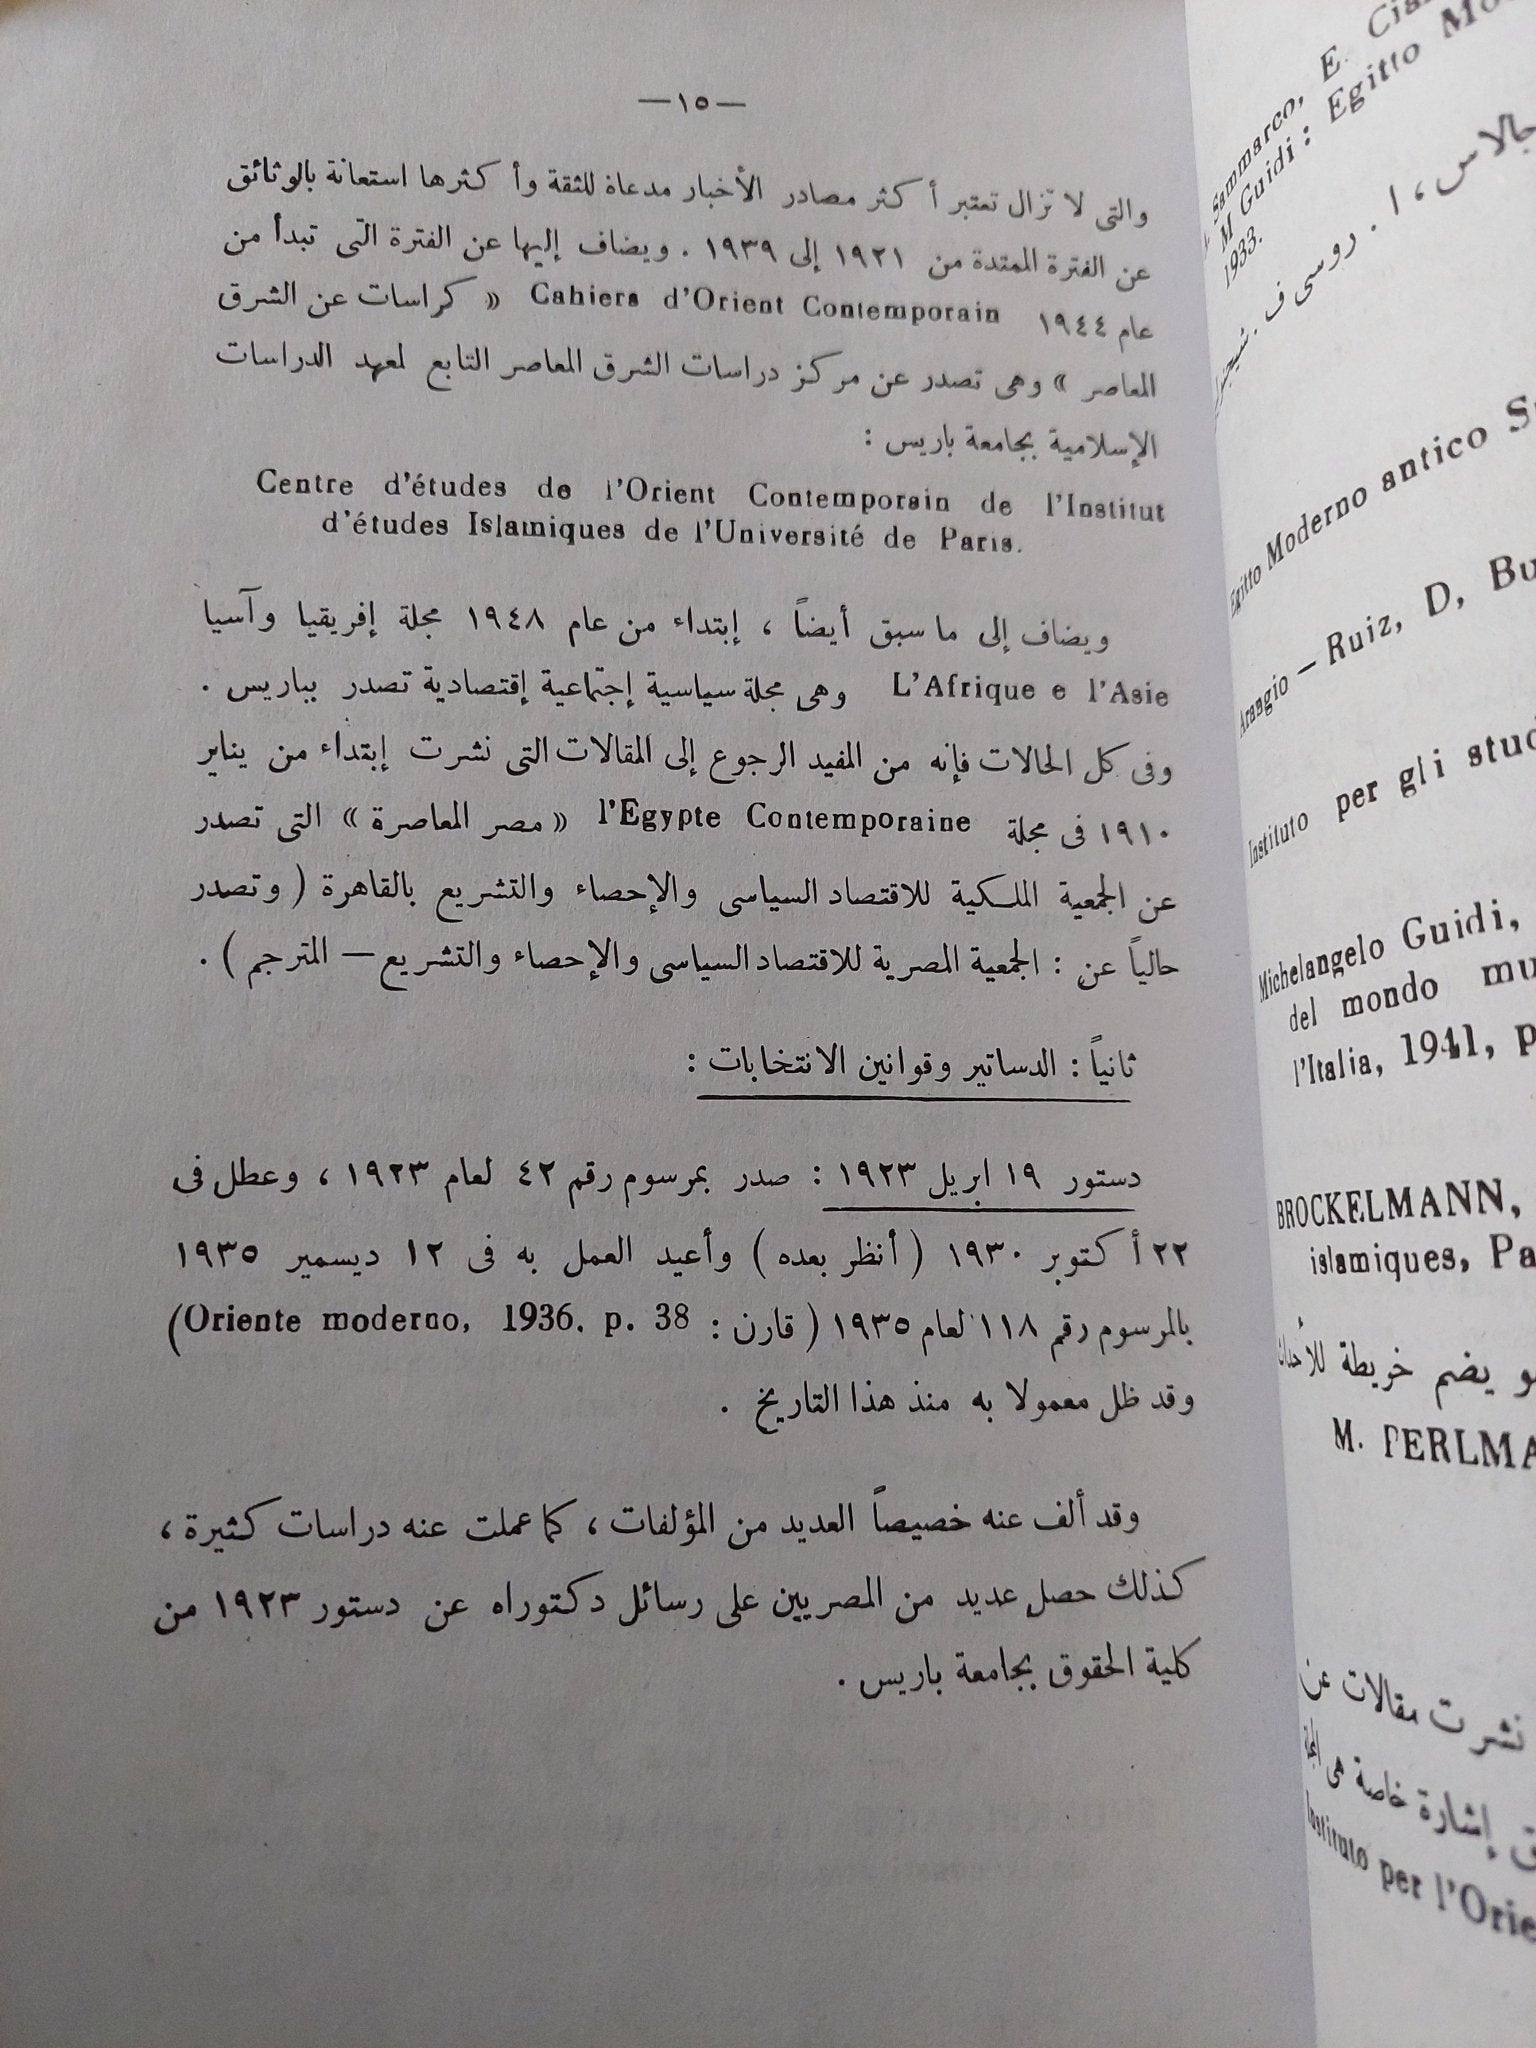 —١٥—
والتى لا تزال تعتبر أكثر مصادر الأخبار مدعاة للثقة وأكثرها استعانة بالوثائق
عن الفترة الممتدة من ١٩٢١ إلى ١٩٣٩ . ويضاف إليها عن الفترة التى تبدأ من
عام ١٩٤٤ Cahiers d'Orient Contemporain « كراسات عن الشرق
المعاصر » وهى تصدر عن مركز دراسات الشرق المعاصر التابع لمعهد الدراسات
الإسلامية بجامعة باريس :
Centre d'études de l'Orient Contemporain de l'Institut
d'études Islamiques de l'Université de Paris.
ويضاف إلى ما سبق أيضاً ، إبتداء من عام ١٩٤٨ مجلة إفريقيا وآسيا
L'Afrique e l'Asie وهى مجلة سياسية إجتماعية إقتصادية تصدر بباريس .
وفى كل الحالات فإنه من المفيد الرجوع إلى المقالات التى نشرت إبتداء من يناير
١٩١٠ فى مجلة l'Egypte Contemporaine « مصر المعاصرة » التى تصدر
عن الجمعية الملكية للاقتصاد السياسى والإحصاء والتشريع بالقاهرة ( وتصدر
حالياً عن : الجمعية المصرية للاقتصاد السياسى والإحصاء والتشريع — المترجم ) .
ثانياً : الدساتير وقوانين الانتخابات :
دستور ١٩ ابريل ١٩٢٣ : صدر بمرسوم رقم ٤٢ لعام ١٩٢٣ ، وعطل فى
٢٢ أكتوبر ١٩٣٠ ( أنظر بعده ) وأعيد العمل به فى ١٢ ديسمبر ١٩٣٥
بالمرسوم رقم ١١٨ لعام ١٩٣٥ ( قارن : Oriente moderno, 1936. p. 38)
وقد ظل معمولا به منذ هذا التاريخ .
وقد ألف عنه خصيصاً العديد من المؤلفات ، كما عملت عنه دراسات كثيرة ،
كذلك حصل عديد من المصريين على رسائل دكتوراه عن دستور ١٩٢٣ من
كلية الحقوق بجامعة باريس .
Sammarco, E.
M Guidi : Egitto
1933.
ا . روسى ف .
Egitto Moderno antico
Arangio – Ruiz, D,
Instituto per gli
Michelangelo Guidi,
del mondo
l'Italia, 1941,
BROCKELMANN,
islamiques,
يضم خريطة
M.
نشرت مقالات عن
إشارة خاصة هى
Instituto per